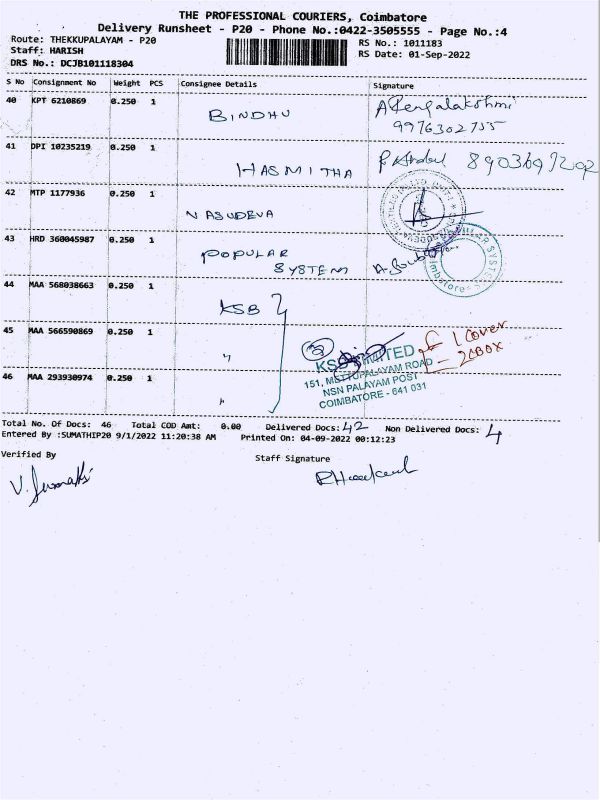 THE PROFESSIONAL COURIERS, Coimbatore
Delivery Runsheet - P20 - Phone No.:0422-3505555 - Page No.:4
Route: THEKKUPALAYAM - P20
RS No.: 1011183
Staff: HARISH
RS Date: 01-Sep-2022
DRS No.: DCJB101118304
S No Consignment No Weight PCS Consignee Details Signature
40 KPT 6210869 0.250 1 BINDHU
9976302755
41 DPI 10235219 0.250 1 HASMITHA
42 MTP 1177936 0.250 1 VASUDEVA
43 HRD 360045987 0.250 1 POPULAR
SYSTEM
44 MAA 568038663 0.250 1 KSB
45 MAA 566590869 0.250 1 "
46 MAA 293930974 0.250 1 "
1 Cover
2 BOX
KSB LIMITED
151, METTUPALAYAM ROAD
NSN PALAYAM POST
COIMBATORE - 641 031
Total No. Of Docs: 46 Total COD Amt: 0.00 Delivered Docs: 42 Non Delivered Docs: 4
Entered By :SUMATHIP20 9/1/2022 11:20:38 AM Printed On: 04-09-2022 00:12:23
Verified By
Staff Signature
V. Sumathi